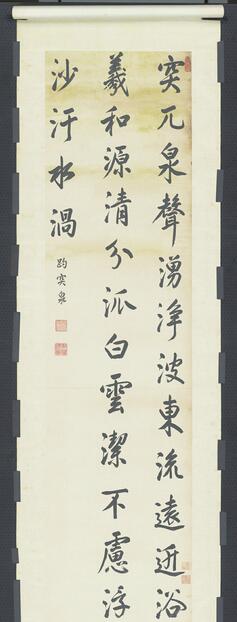 突兀泉聲湧淨波東流遠近浴
羲和源清分泒白雲潔不慮浮
沙汙水渦
趵突泉